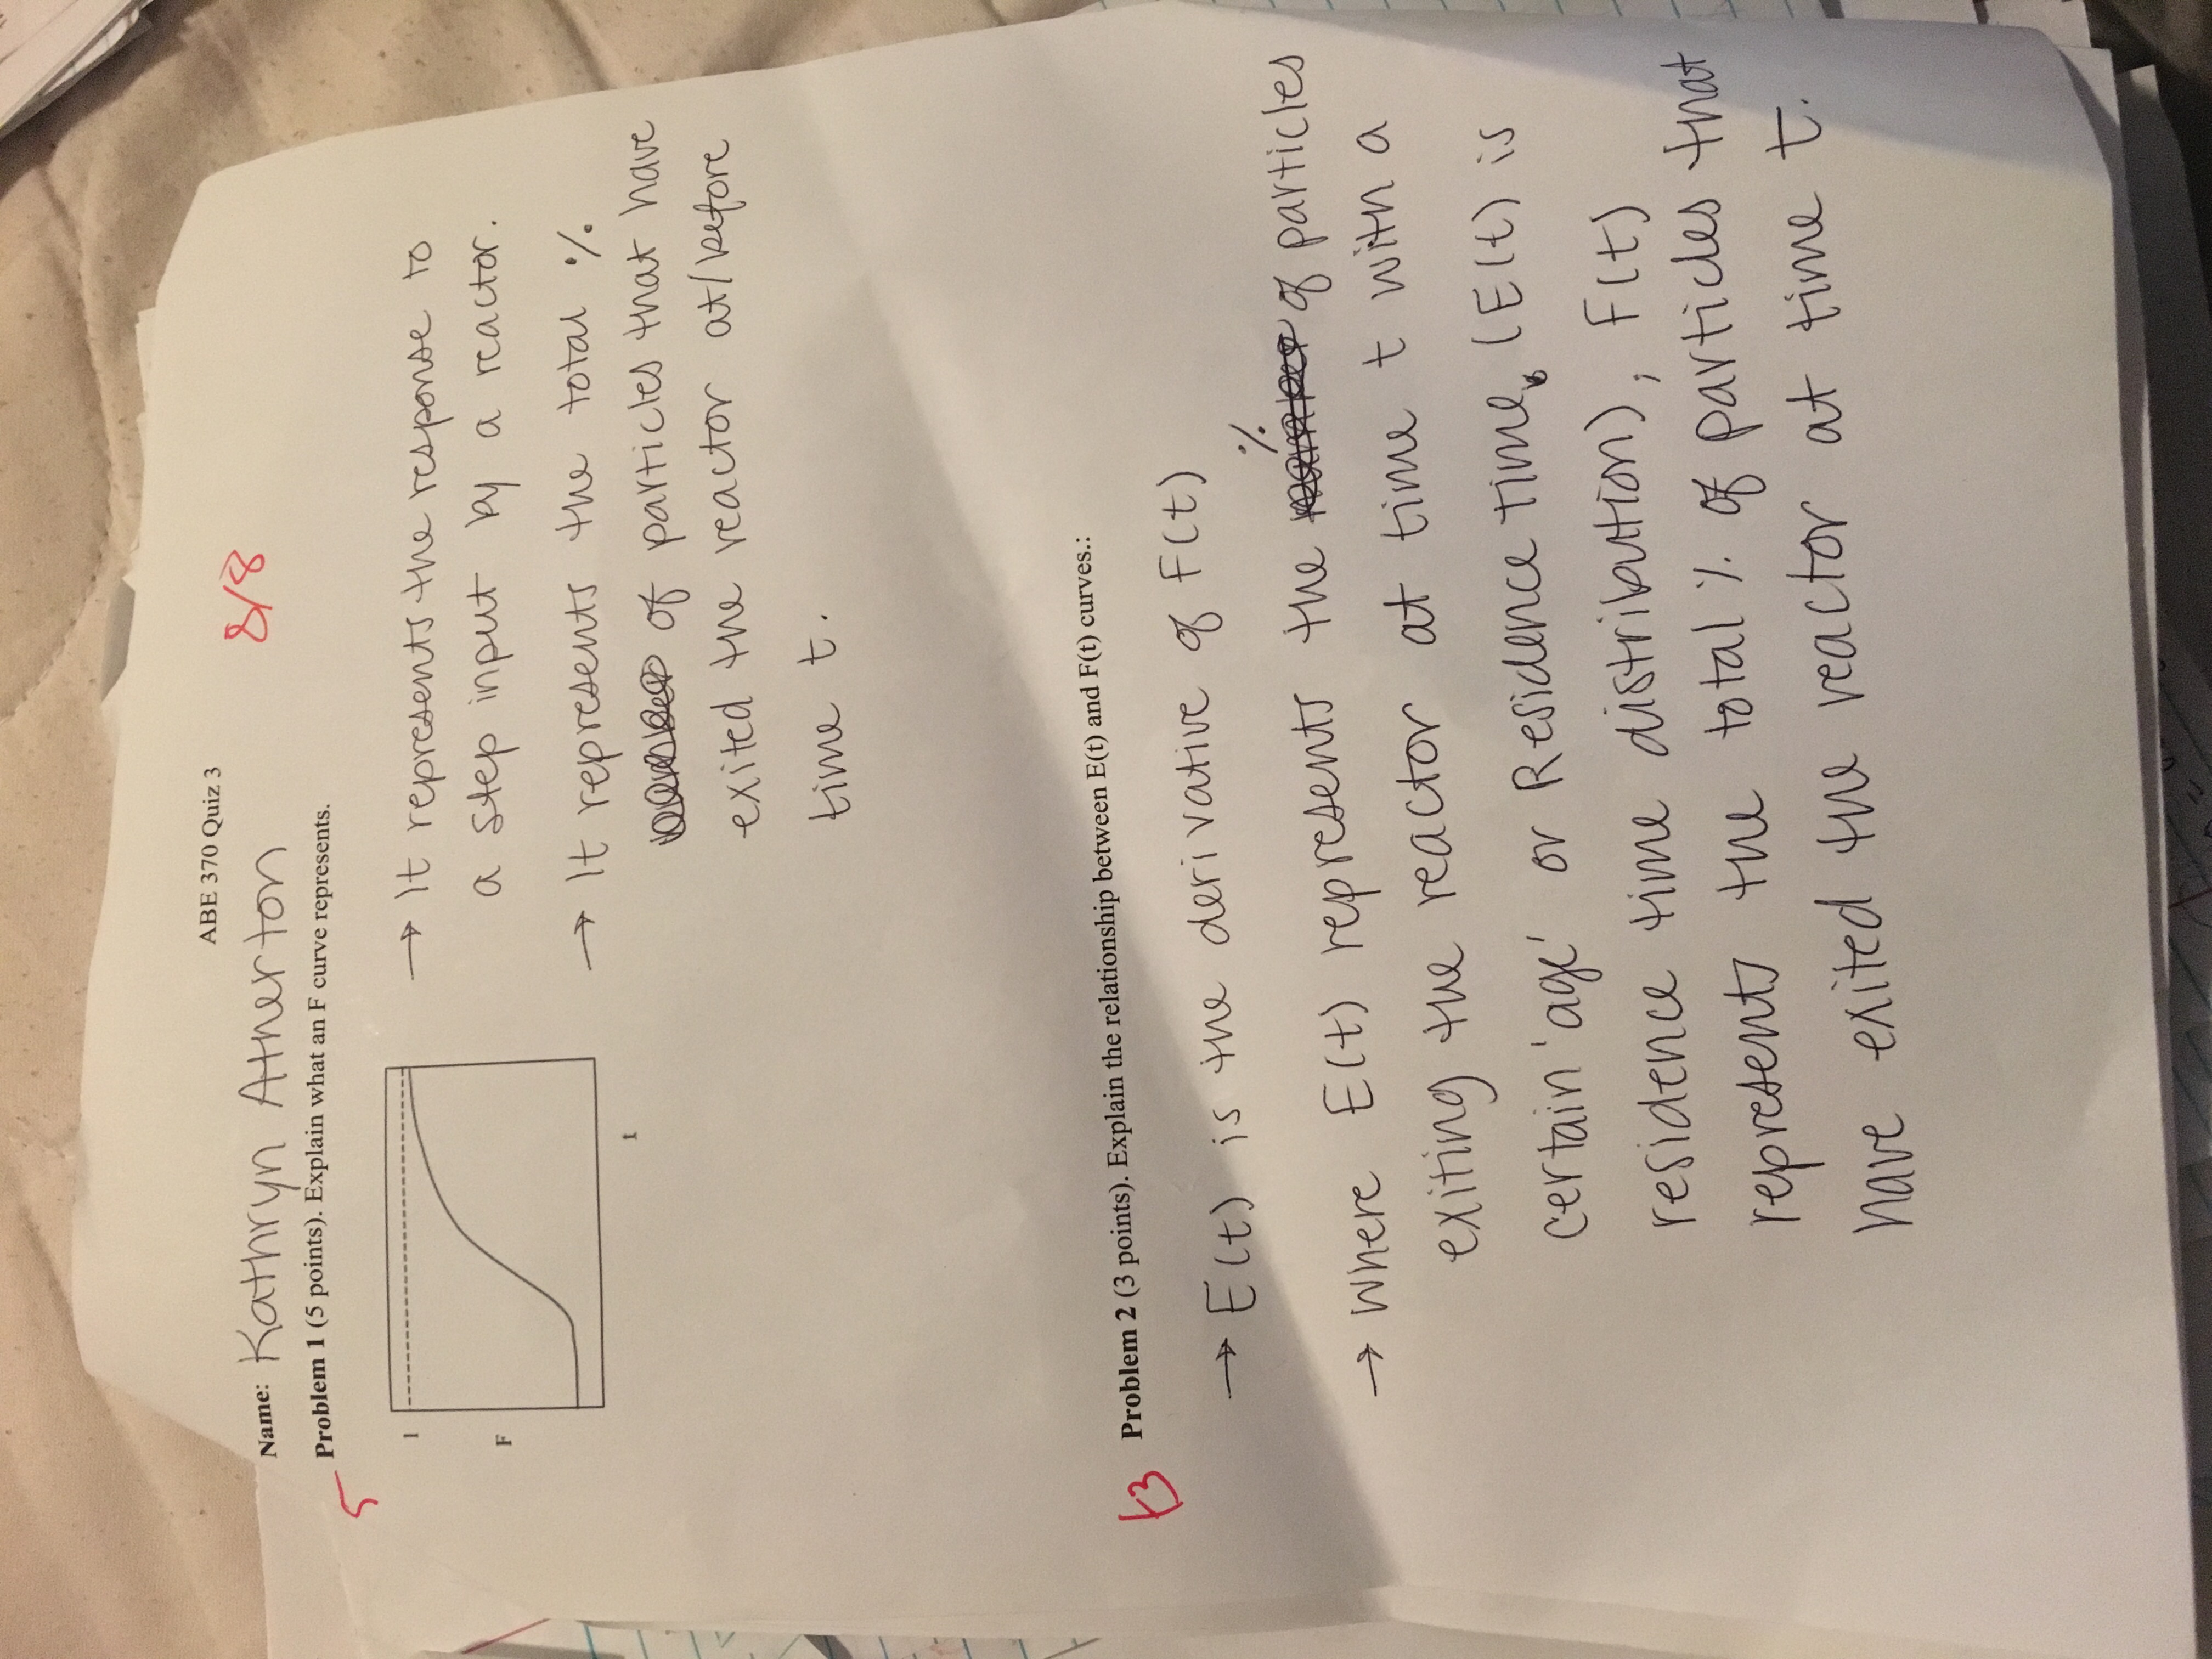 ABE 370 Quiz 3
8/8
Name: Kathryn Atherton
Problem 1 (5 points). Explain what an F curve represents.
5
1
F
t
→ It represents the response to
a step input by a reactor.
→ It represents the total %
of particles that have
exited the reactor at/before
time t.
+3
Problem 2 (3 points). Explain the relationship between E(t) and F(t) curves.:
→ E(t) is the derivative of F(t)
→ Where E(t) represents the % of particles
exiting the reactor at time t with a
certain 'age' or Residence time, (E(t) is
residence time distribution), F(t)
represents the total % of particles that
have exited the reactor at time t.